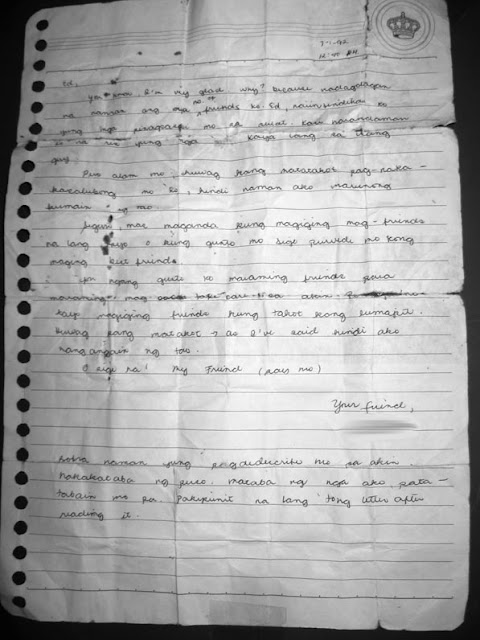 7-1-92
12:45 AM
Ed,
you know I'm very glad why? because nadagdagan
na naman ang mga no. of friends ko. Ed, naiintindihan ko
yung mga sinasabi mo sa sulat. Kaso
yung mga kaya lang sa ibang
guy
But alam mo, huwag kang matatakot pag naka-
kasalubong mo ko, hindi naman ako marunong
kumain ng tao.
Siguro mas maganda kung magiging mag-friends
na lang tayo o kung gusto mo sige puwede mo kong
maging best friends.
ngang gusto ko maraming friends para
maraming mag
tayo magiging friends kung takot kang lumapit.
Huwag kang matakot, as I've said hindi ako
nangangain ng tao.
O sige na! My Friend (daw mo)
Your friend,
Sobra naman yung pagdidescribe mo sa akin.
Nakakataba ng puso. Mataba na nga ako, pata-
tabain mo pa. Pakipunit na lang 'tong letter after
reading it.